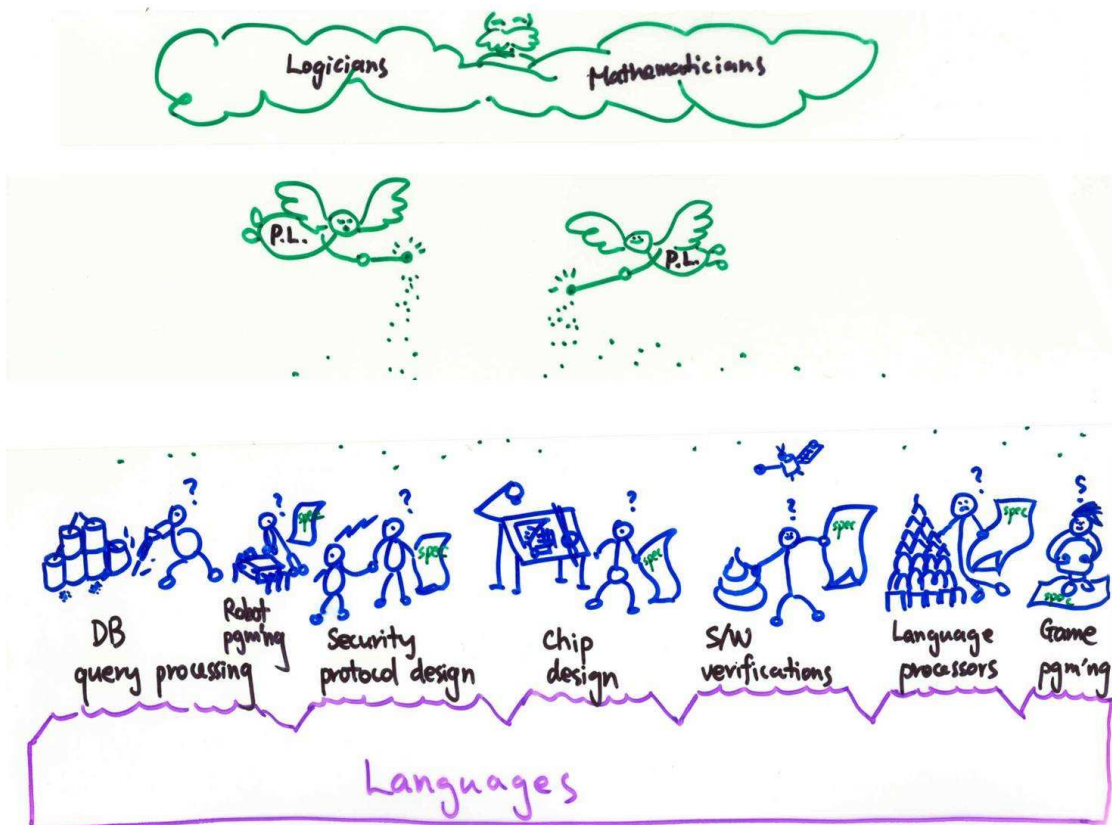 Logicians
Mathematicians
P.L.
P.L.
spec
spec
spec
spec
spec
spec
DB
query processing
Robot
pgm'ng
Security
protocol design
Chip
design
S/W
verifications
Language
processors
Game
pgm'ng
Languages